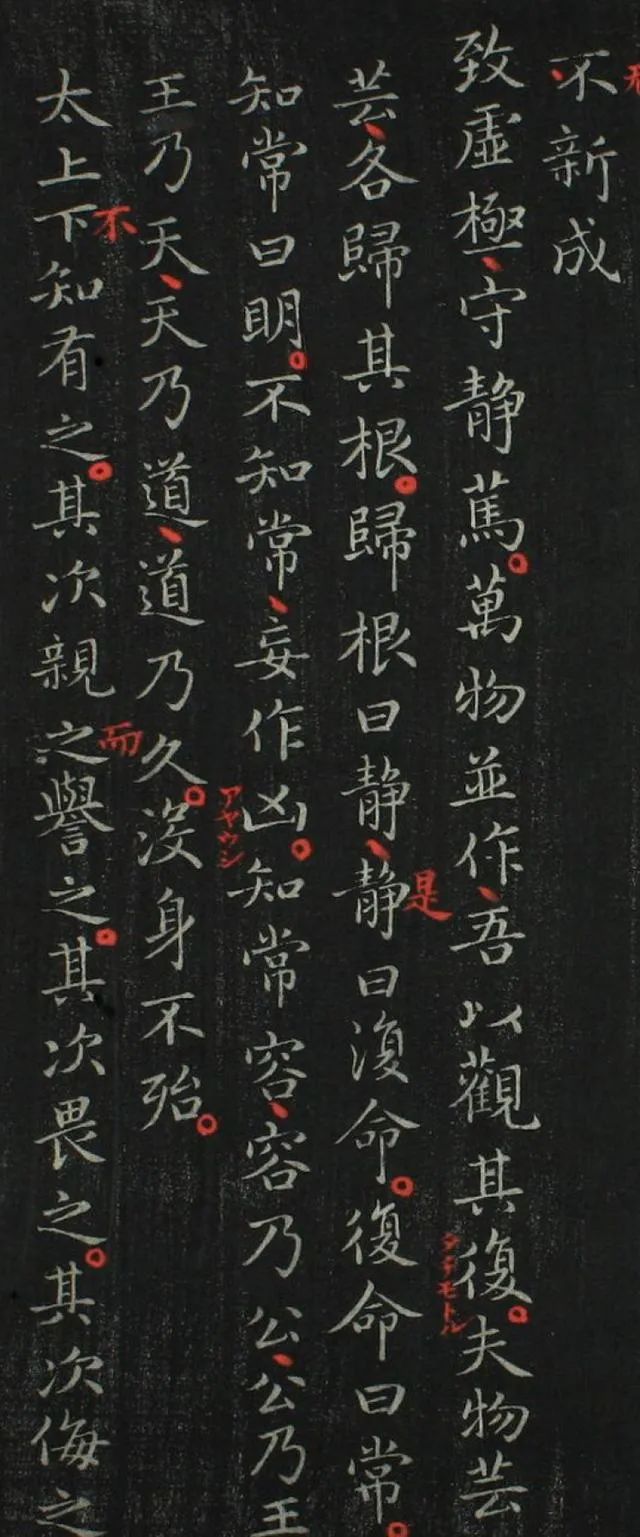 不新成
致虛極、守静篤。萬物並作、吾以觀其復。夫物芸
芸、各歸其根。歸根曰静、静曰復命。復命曰常。
知常曰明。不知常、妄作凶。知常容、容乃公、公乃王
王乃天、天乃道、道乃久。没身不殆。
太上下知有之。其次親之譽之。其次畏之。其次侮之
是
アヤウシ
不
而